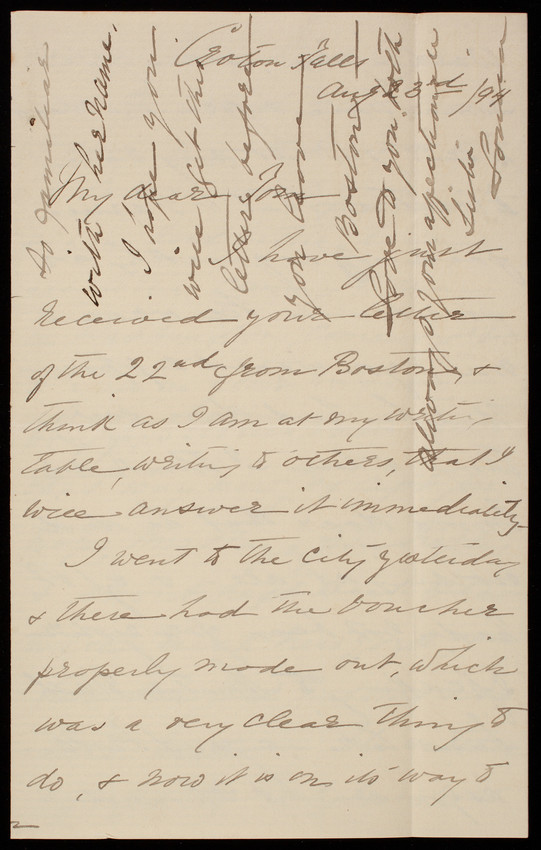 Croton Falls
Aug 23rd / 94
My dear Tom
I have just
received your letter
of the 22nd from Boston, &
think as I am at my writing
table, writing to others, that I
will answer it immediately.
I went to the city yesterday
& there had the voucher
properly made out, which
was a very clear thing to
do, & now it is on its way to
so familiar
with her name.
I hope you
will get this
letter before
you leave
Boston.
Love to you both
Always your affectionate
Sister
Louisa